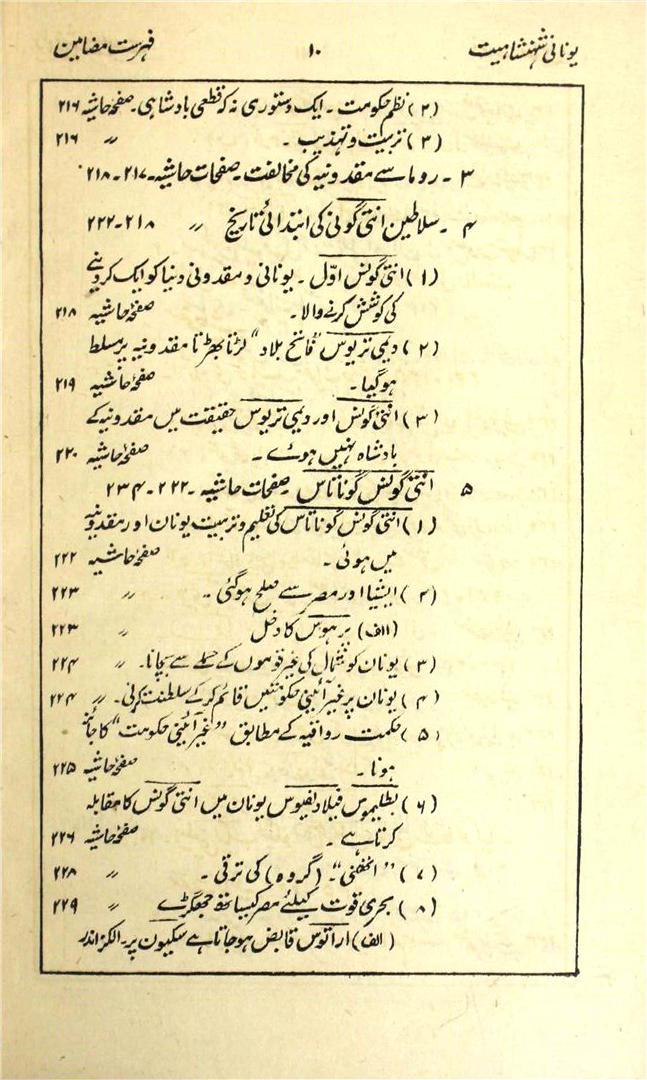 یونانی شہنشاہیت ۱۰ فہرست مضامین
(۲) نظم حکومت ۔ ایک دستوری نہ کہ قطعی بادشاہی ۔ صفحہ حاشیہ ۲۱۶
(۳) تربیت و تہذیب ۔ ,, ۲۱۶
۳ ۔ روما سے مقدونیہ کی مخالفت ۔ صفحات حاشیہ ۔ ۲۱۷ ۔ ۲۱۸
۴ ۔ سلاطین انتی گونی کی ابتدائی تاریخ ,, ۲۱۸ ۔ ۲۲۲
(۱) انتی گونس اوّل ۔ یونانی و مقدونی دنیا کو ایک کردینے
کی کوشش کرنے والا ۔ صفحۂ حاشیہ ۲۱۸
(۲) دیمی تریوس "فاتح بلاد" لڑتا بھڑتا مقدونیہ پر مسلط
ہوگیا ۔ صفحۂ حاشیہ ۲۱۹
(۳) انتی گونس اور دیمی تریوس حقیقت میں مقدونیہ کے
بادشاہ نہیں ہوئے ۔ صفحۂ حاشیہ ۲۲۰
۵ انتی گونس گوناتاس ۔ صفحات حاشیہ ۔ ۲۲۲ ۔ ۲۳۴
(۱) انتی گونس گوناتاس کی تعلیم و تربیت یونان اور مقدونیہ
میں ہوئی ۔ صفحۂ حاشیہ ۲۲۲
(۲) ایشیا اور مصر سے صلح ہوگئی ۔ ,, ۲۲۳
(الف) پرہوس کا دخل ,, ۲۲۳
(۳) یونان کو شمال کی غیر قوموں کے حملے سے بچانا ۔ ,, ۲۲۴
(۴) یونان پر غیر آئینی حکومتیں قائم کرکے سلطنت کرنی ۔ ,, ۲۲۴
(۵) حکمت رواقیہ کے مطابق "غیر آئینی حکومت" کا جائز
ہونا ۔ صفحۂ حاشیہ ۲۲۵
(۶) بطلیموس فیلادلفیوس یونان میں انتی گونس کا مقابلہ
کرتا ہے ۔ صفحۂ حاشیہ ۲۲۶
(۷) " ۔ (گروہ) کی ترقی ۔ ,, ۲۲۸
(۸) بحری قوت کیلئے مصر کیساتھ جھگڑے ,, ۲۲۹
(الف) اراتوس قابض ہوجاتا ہے سکیون پر ۔ الکزاندر